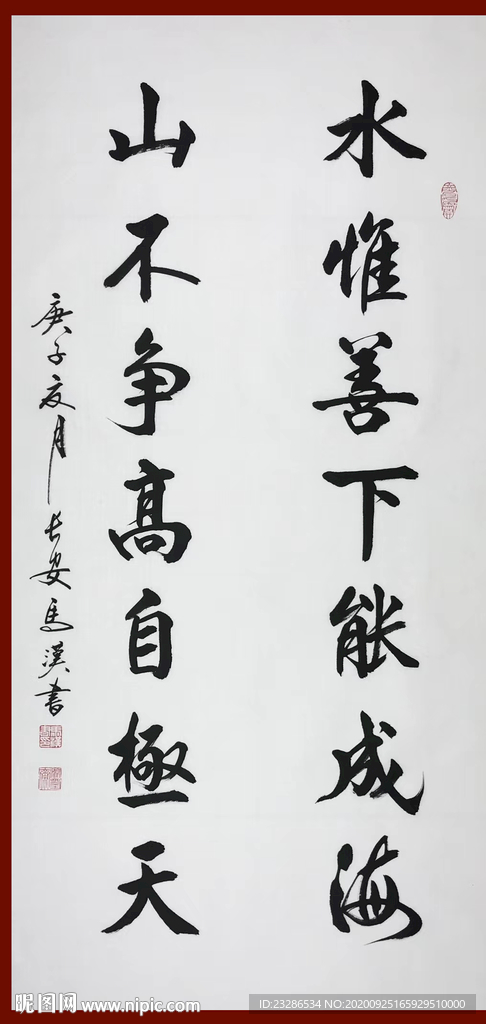 水惟善下能成海
山不争高自極天
庚子夏月长安馬漢書
昵图网 www.nipic.com
ID:23286534 NO:20200925165929510000